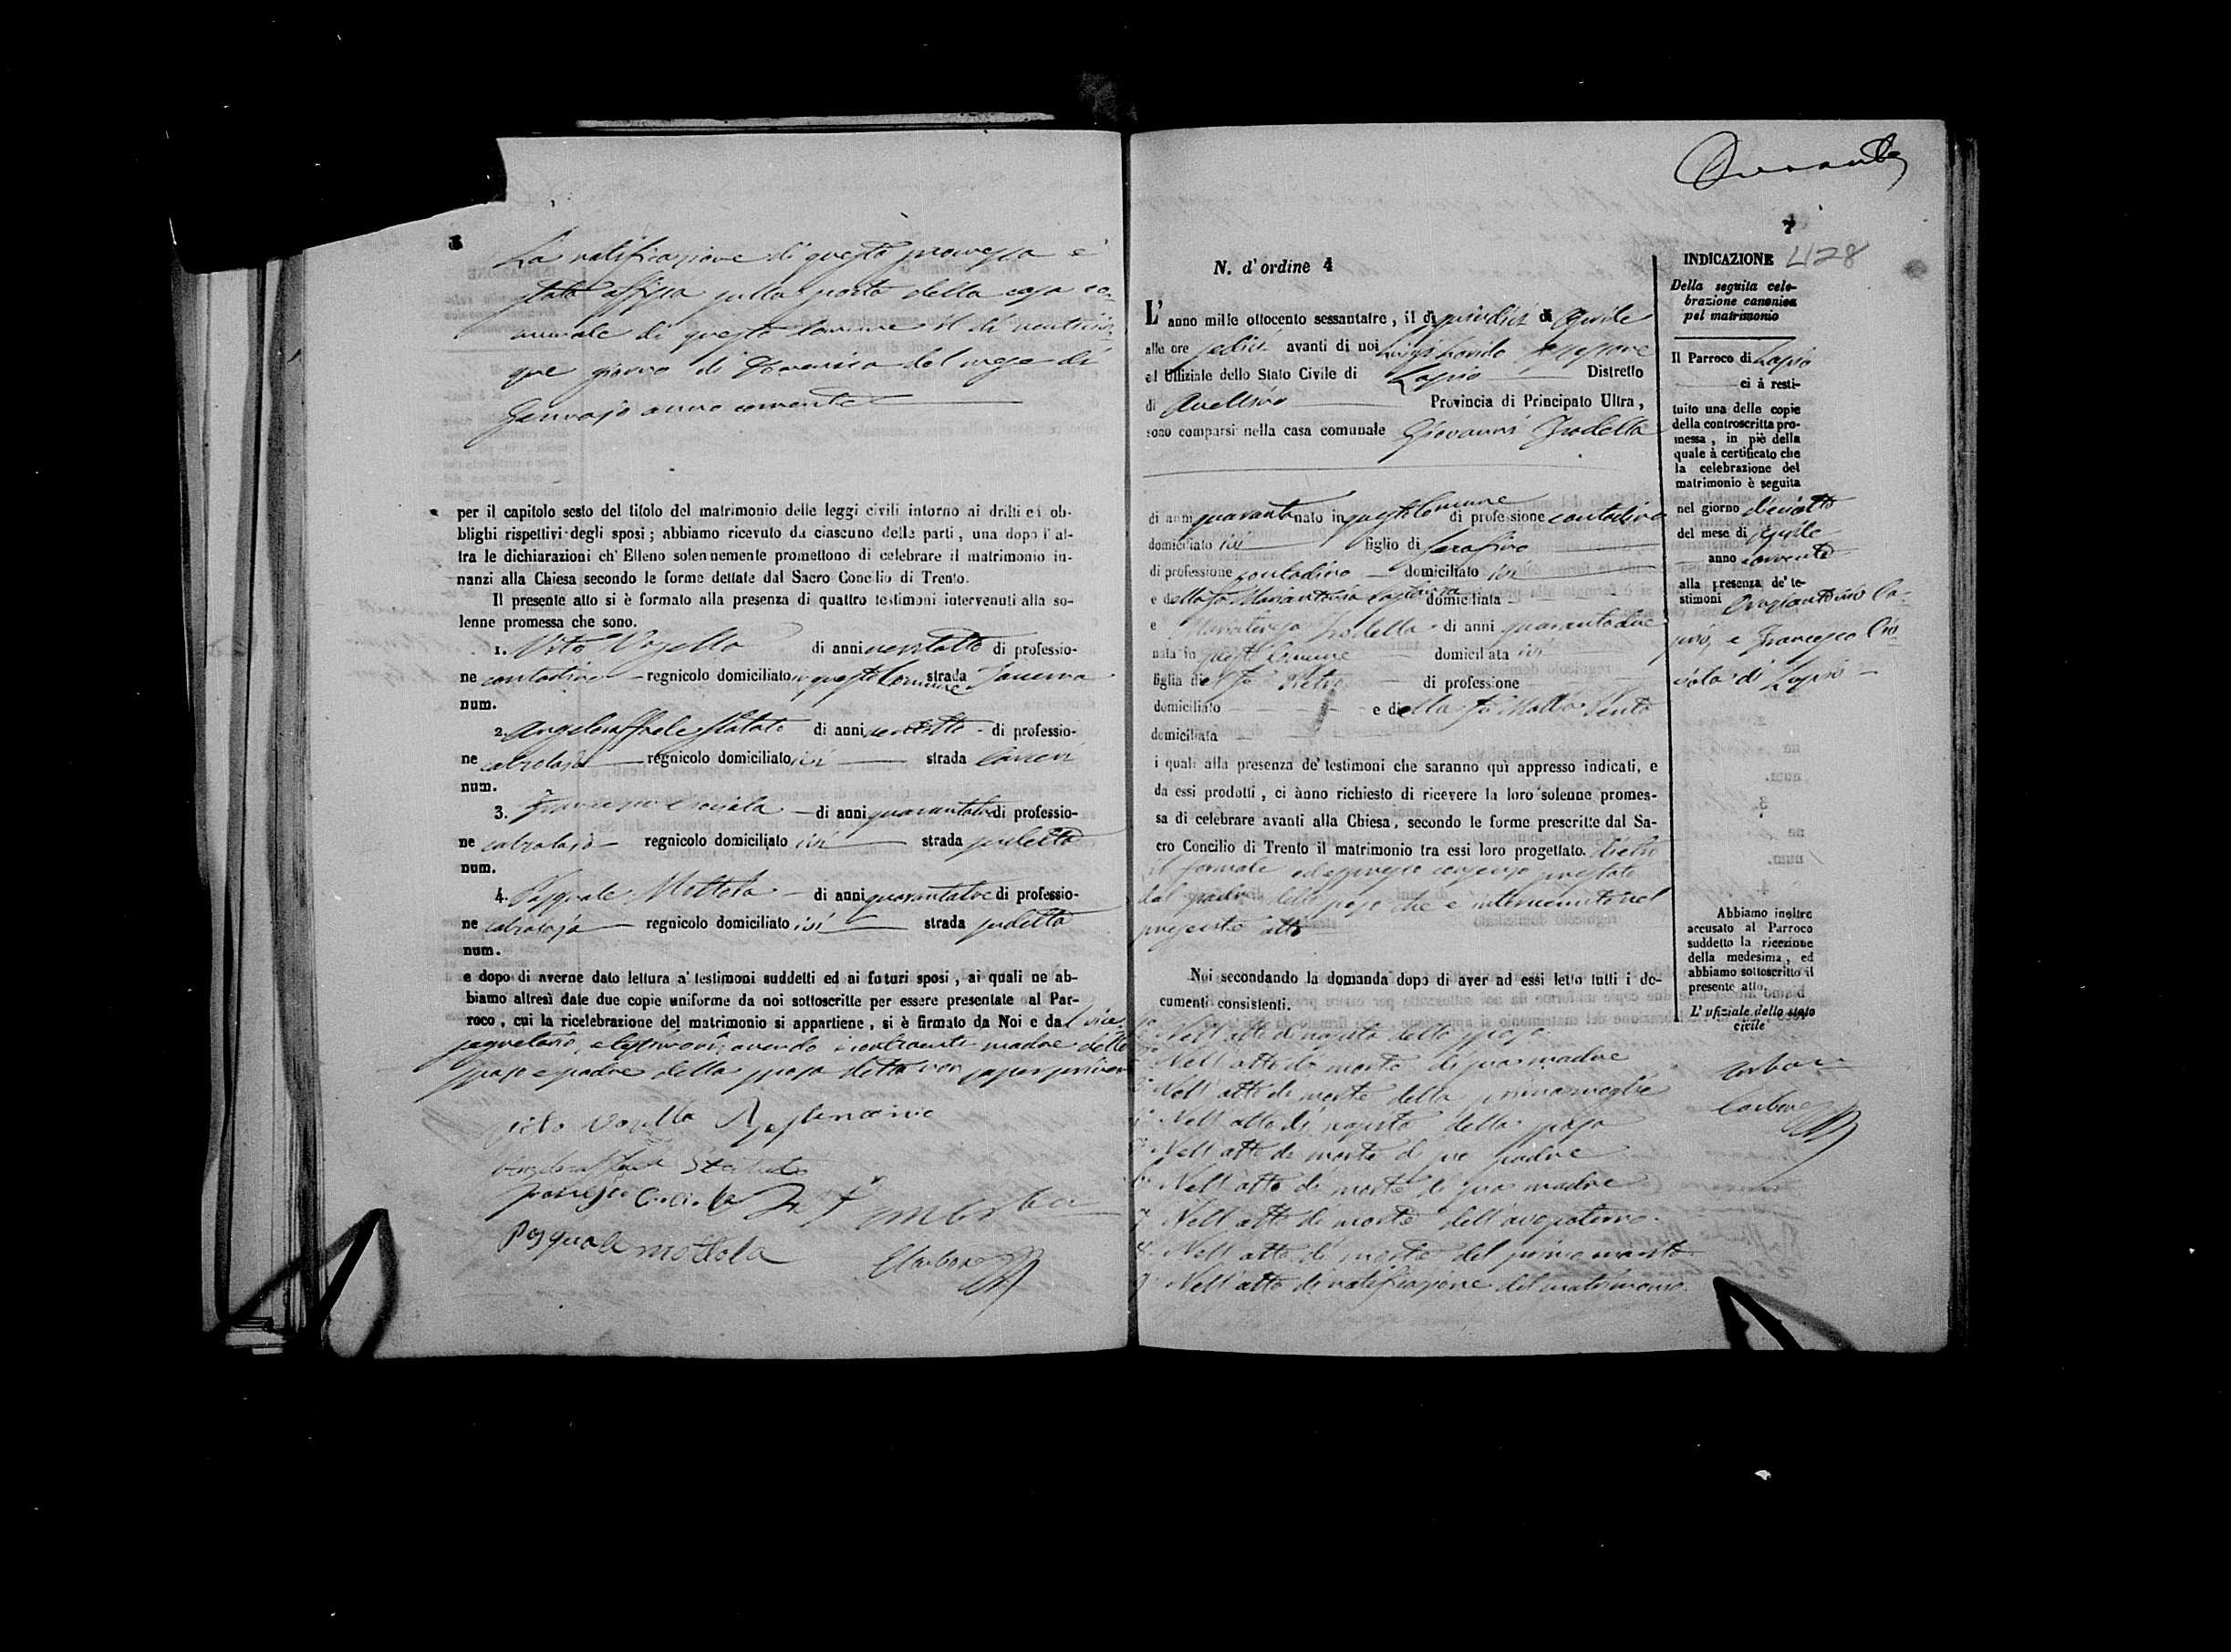 La notificazione di questa promessa è
stata affissa sulla porta della casa co-
munale di questo Comune il di venticin-
que giorno di Domenica del mese di
Gennajo anno corrente
per il capitolo sesto del titolo del matrimonio delle leggi civili intorno ai dritti ed ob-
blighi rispettivi degli sposi; abbiamo ricevuto da ciascuno delle parti, una dopo l'al-
tra le dichiarazioni ch' Elleno solennemente promettono di celebrare il matrimonio in-
nanzi alla Chiesa secondo le forme dettate dal Sacro Concilio di Trento.
Il presente atto si è formato alla presenza di quattro testimoni intervenuti alla so-
lenne promessa che sono.
1. Vito di anni ventotto di professio-
ne contadino regnicolo domiciliato in questo Comune strada
num.
2. Angeloraffaele Statuto di anni di professio-
ne calzolajo regnicolo domiciliato ivi strada
num.
3. Francesco Ciciola di anni di professio-
ne calzolajo regnicolo domiciliato ivi strada
num.
4. Pasquale Mottola di anni quarantatre di professio-
ne calzolajo regnicolo domiciliato ivi strada
num.
e dopo di averne dato lettura a' testimoni suddetti ed ai futuri sposi, ai quali ne ab-
biamo altresì date due copie uniforme da noi sottoscritte per essere presentate al Par-
roco, cui la ricelebrazione del matrimonio si appartiene, si è firmato da Noi e dal vice
segretario, e testimoni, avendo i contraenti madre dello
sposo e padre della sposa detto non saper scrivere
Pasquale Mottola
Carbone
7
428
N. d'ordine 4
L'anno mille ottocento sessantatre, il dì quindici di Aprile
alle ore sedici avanti di noi Luigi Assessore
ed Uffiziale dello Stato Civile di Lapio Distretto
di Avellino Provincia di Principato Ultra,
sono comparsi nella casa comunale Giovanni Trodella
di anni quaranta nato in questo Comune di professione contadino
domiciliato ivi figlio di Serafino
di professione contadino domiciliato ivi
e della fu Mariantonia domiciliata
e Mariateresa Trodella di anni quarantadue
nata in questo Comune domiciliata ivi
figlia del fu Pietro di professione
domiciliato e della fu
domiciliata
i quali alla presenza de' testimoni che saranno quì appresso indicati, e
da essi prodotti, ci ànno richiesto di ricevere la loro solenne promes-
sa di celebrare avanti alla Chiesa, secondo le forme prescritte dal Sa-
cro Concilio di Trento il matrimonio tra essi loro progettato. dietro
il formale ed espresso consenso prestato
dal padre dello sposo che è intervenuto nel
presente atto
Noi secondando la domanda dopo di aver ad essi letto tutti i do-
cumenti consistenti.
1° Nell'atto di nascita dello sposo
2° Nell'atto di morte di sua madre
3° Nell'atto di morte della prima moglie
4° Nell'atto di nascita della sposa
5° Nell'atto di morte di suo padre
6° Nell'atto di morte di sua madre
7° Nell'atto di morte dell'avo paterno
8° Nell'atto di morte del primo marito
9° Nell'atto di notificazione del matrimonio
INDICAZIONE
Della seguita cele-
brazione canonica
pel matrimonio
Il Parroco di Lapio
ci à resti-
tuito una delle copie
della controscritta pro-
messa, in piè della
quale à certificato che
la celebrazione del
matrimonio è seguita
nel giorno diciotto
del mese di Aprile
anno corrente
alla presenza de' te-
stimoni
e Francesco Cic-
ciola di Lapio
Abbiamo inoltre
accusato al Parroco
suddetto la ricezione
della medesima, ed
abbiamo sottoscritto il
presente atto.
L'ufiziale dello stato
civile
Carbone